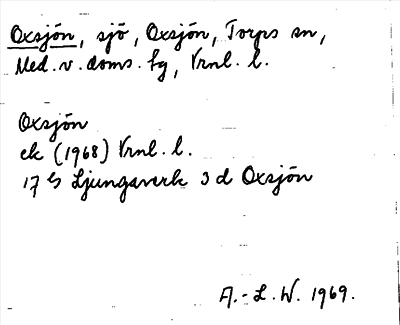 Oxsjön, sjö, Oxsjön, Torps sn,
Med. v. doms. fg, Vrnl. l.
Oxsjön
ek (1968) Vrnl. l.
17 G Ljungaverk 3 d Oxsjön
A.-L. W. 1969.